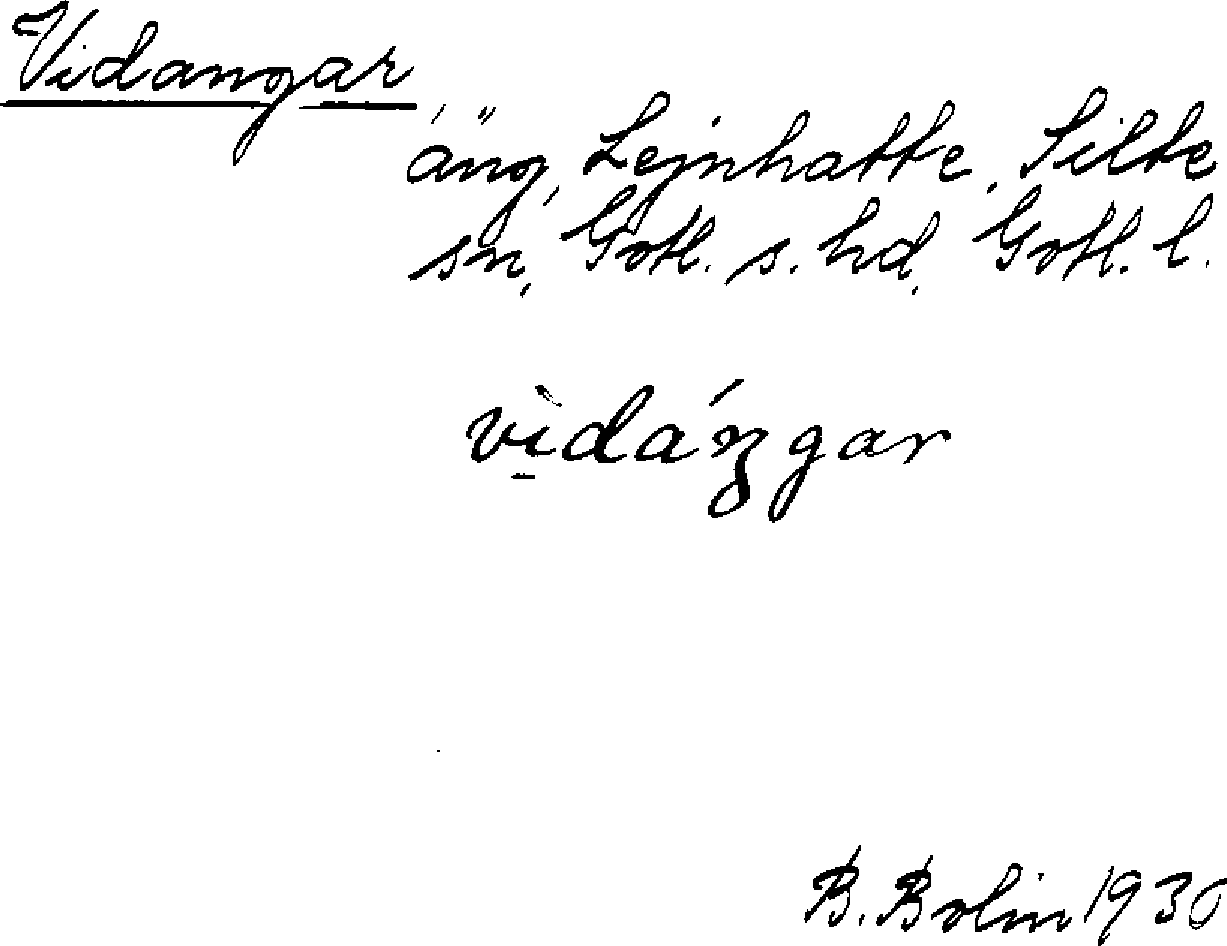 Vidangar
äng, Lejnhatte, Silte
sn, Gotl. s. hd, Gotl. l.
vìdáŋgar
B. Bolin 1930